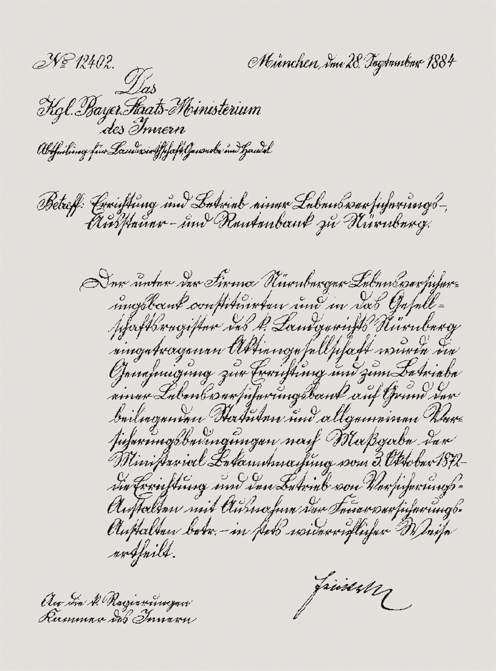 No 12402.
München, den 28. September 1884
Das
Kgl. Bayer. Staats-Ministerium
des Innern
Abtheilung für Landwirthschaft Gewerbe und Handel
Betreff: Errichtung und Betrieb einer Lebensversicherungs-,
Aussteuer- und Rentenbank zu Nürnberg.
Der unter der Firma Nürnberger Lebensversicher-
ungsbank constituirten und in das Gesell-
schaftsregister des k. Landgerichts Nürnberg
eingetragenen Aktiengesellschaft wurde die
Genehmigung zur Errichtung und zum Betriebe
einer Lebensversicherungsbank auf Grund der
beiliegenden Statuten und allgemeinen Ver-
sicherungsbedingungen nach Maßgabe der
Ministerial Bekanntmachung vom 3. Oktober 1872-
die Errichtung und den Betrieb von Versicherungs-
Anstalten mit Ausnahme der Feuerversicherungs-
Anstalten betr. - in stets widerruflicher Weise
ertheilt.
An die k. Regierungen
Kammer des Innern